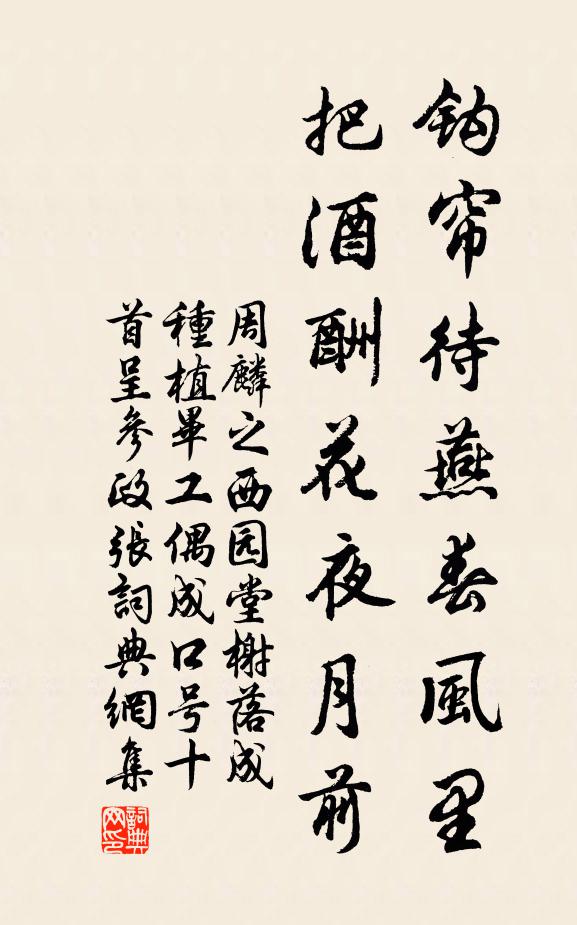 钩帘待燕春風里
把酒酬花夜月前
周麟之西园堂榭落成
種植畢工偶成口号十
首呈參政張詞典網集
詞典網印